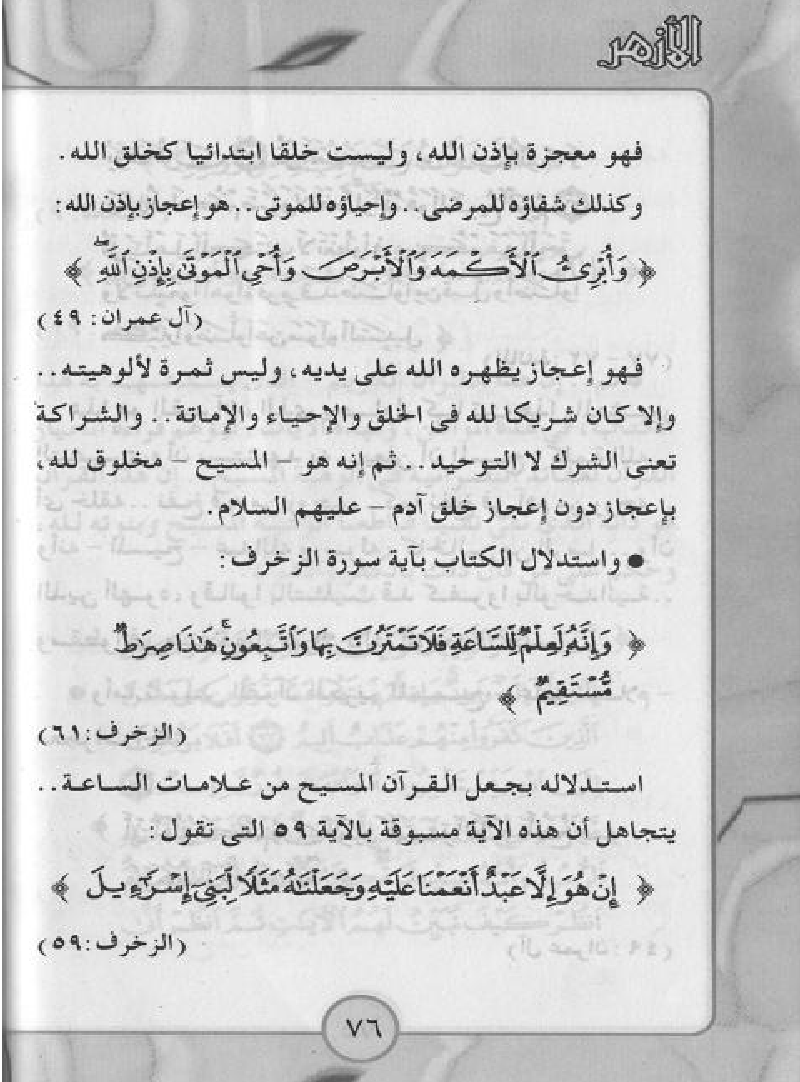 الأزهر
فهو معجزة بإذن الله، وليست خلقا ابتدائيا كخلق الله.
وكذلك شفاؤه للمرضى.. وإحياؤه للموتى.. هو إعجاز بإذن الله:
﴿ وَأُبْرِئُ الْأَكْمَهَ وَالْأَبْرَصَ وَأُحْيِ الْمَوْتَىٰ بِإِذْنِ اللَّهِ ۖ ﴾
(آل عمران: ٤٩)
فهو إعجاز يظهره الله على يديه، وليس ثمرة لألوهيته..
وإلا كان شريكا لله فى الخلق والإحياء والإماتة.. والشراكة
تعنى الشرك لا التوحيد.. ثم إنه هو - المسيح - مخلوق لله،
بإعجاز دون إعجاز خلق آدم - عليهم السلام.
● واستدلال الكتاب بآية سورة الزخرف:
﴿ وَإِنَّهُ لَعِلْمٌ لِّلسَّاعَةِ فَلَا تَمْتَرُنَّ بِهَا وَاتَّبِعُونِ ۚ هَٰذَا صِرَاطٌ
مُّسْتَقِيمٌ ﴾
(الزخرف: ٦١)
استدلاله بجعل القرآن المسيح من علامات الساعة..
يتجاهل أن هذه الآية مسبوقة بالآية ٥٩ التى تقول:
﴿ إِنْ هُوَ إِلَّا عَبْدٌ أَنْعَمْنَا عَلَيْهِ وَجَعَلْنَاهُ مَثَلًا لِّبَنِي إِسْرَائِيلَ ﴾
(الزخرف: ٥٩)
٧٦